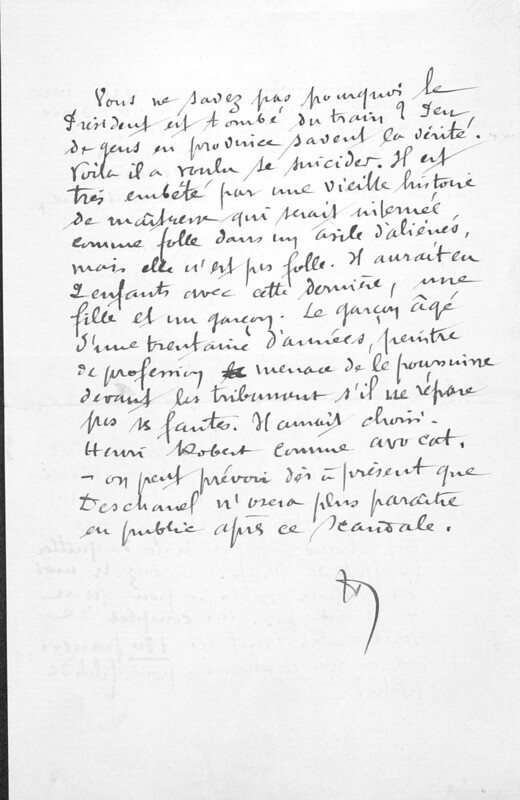 Vous ne savez pas pourquoi le
Président est tombé du train ? Peu
de gens en province savent la vérité.
Voila il a voulu se suicider. Il est
très embêté par une vieille histoire
de maîtresse qui serait internée
comme folle dans un asile d'aliénés,
mais elle n'est pas folle. Il aurait eu
2 enfants avec cette dernière, une
fille et un garçon. Le garçon âgé
d'une trentaine d'années, peintre
de profession menace de le poursuivre
devant les tribunaux s'il ne répare
pas ses fautes. Il aurait choisi
Henri Robert comme avocat.
– on peut prévoir dès à présent que
Deschanel n'osera plus paraître
en public après ce scandale.